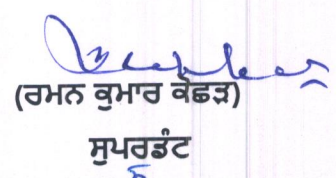 (ਰਮਨ ਕੁਮਾਰ ਕੋਛੜ)
ਸੁਪਰਡੰਟ